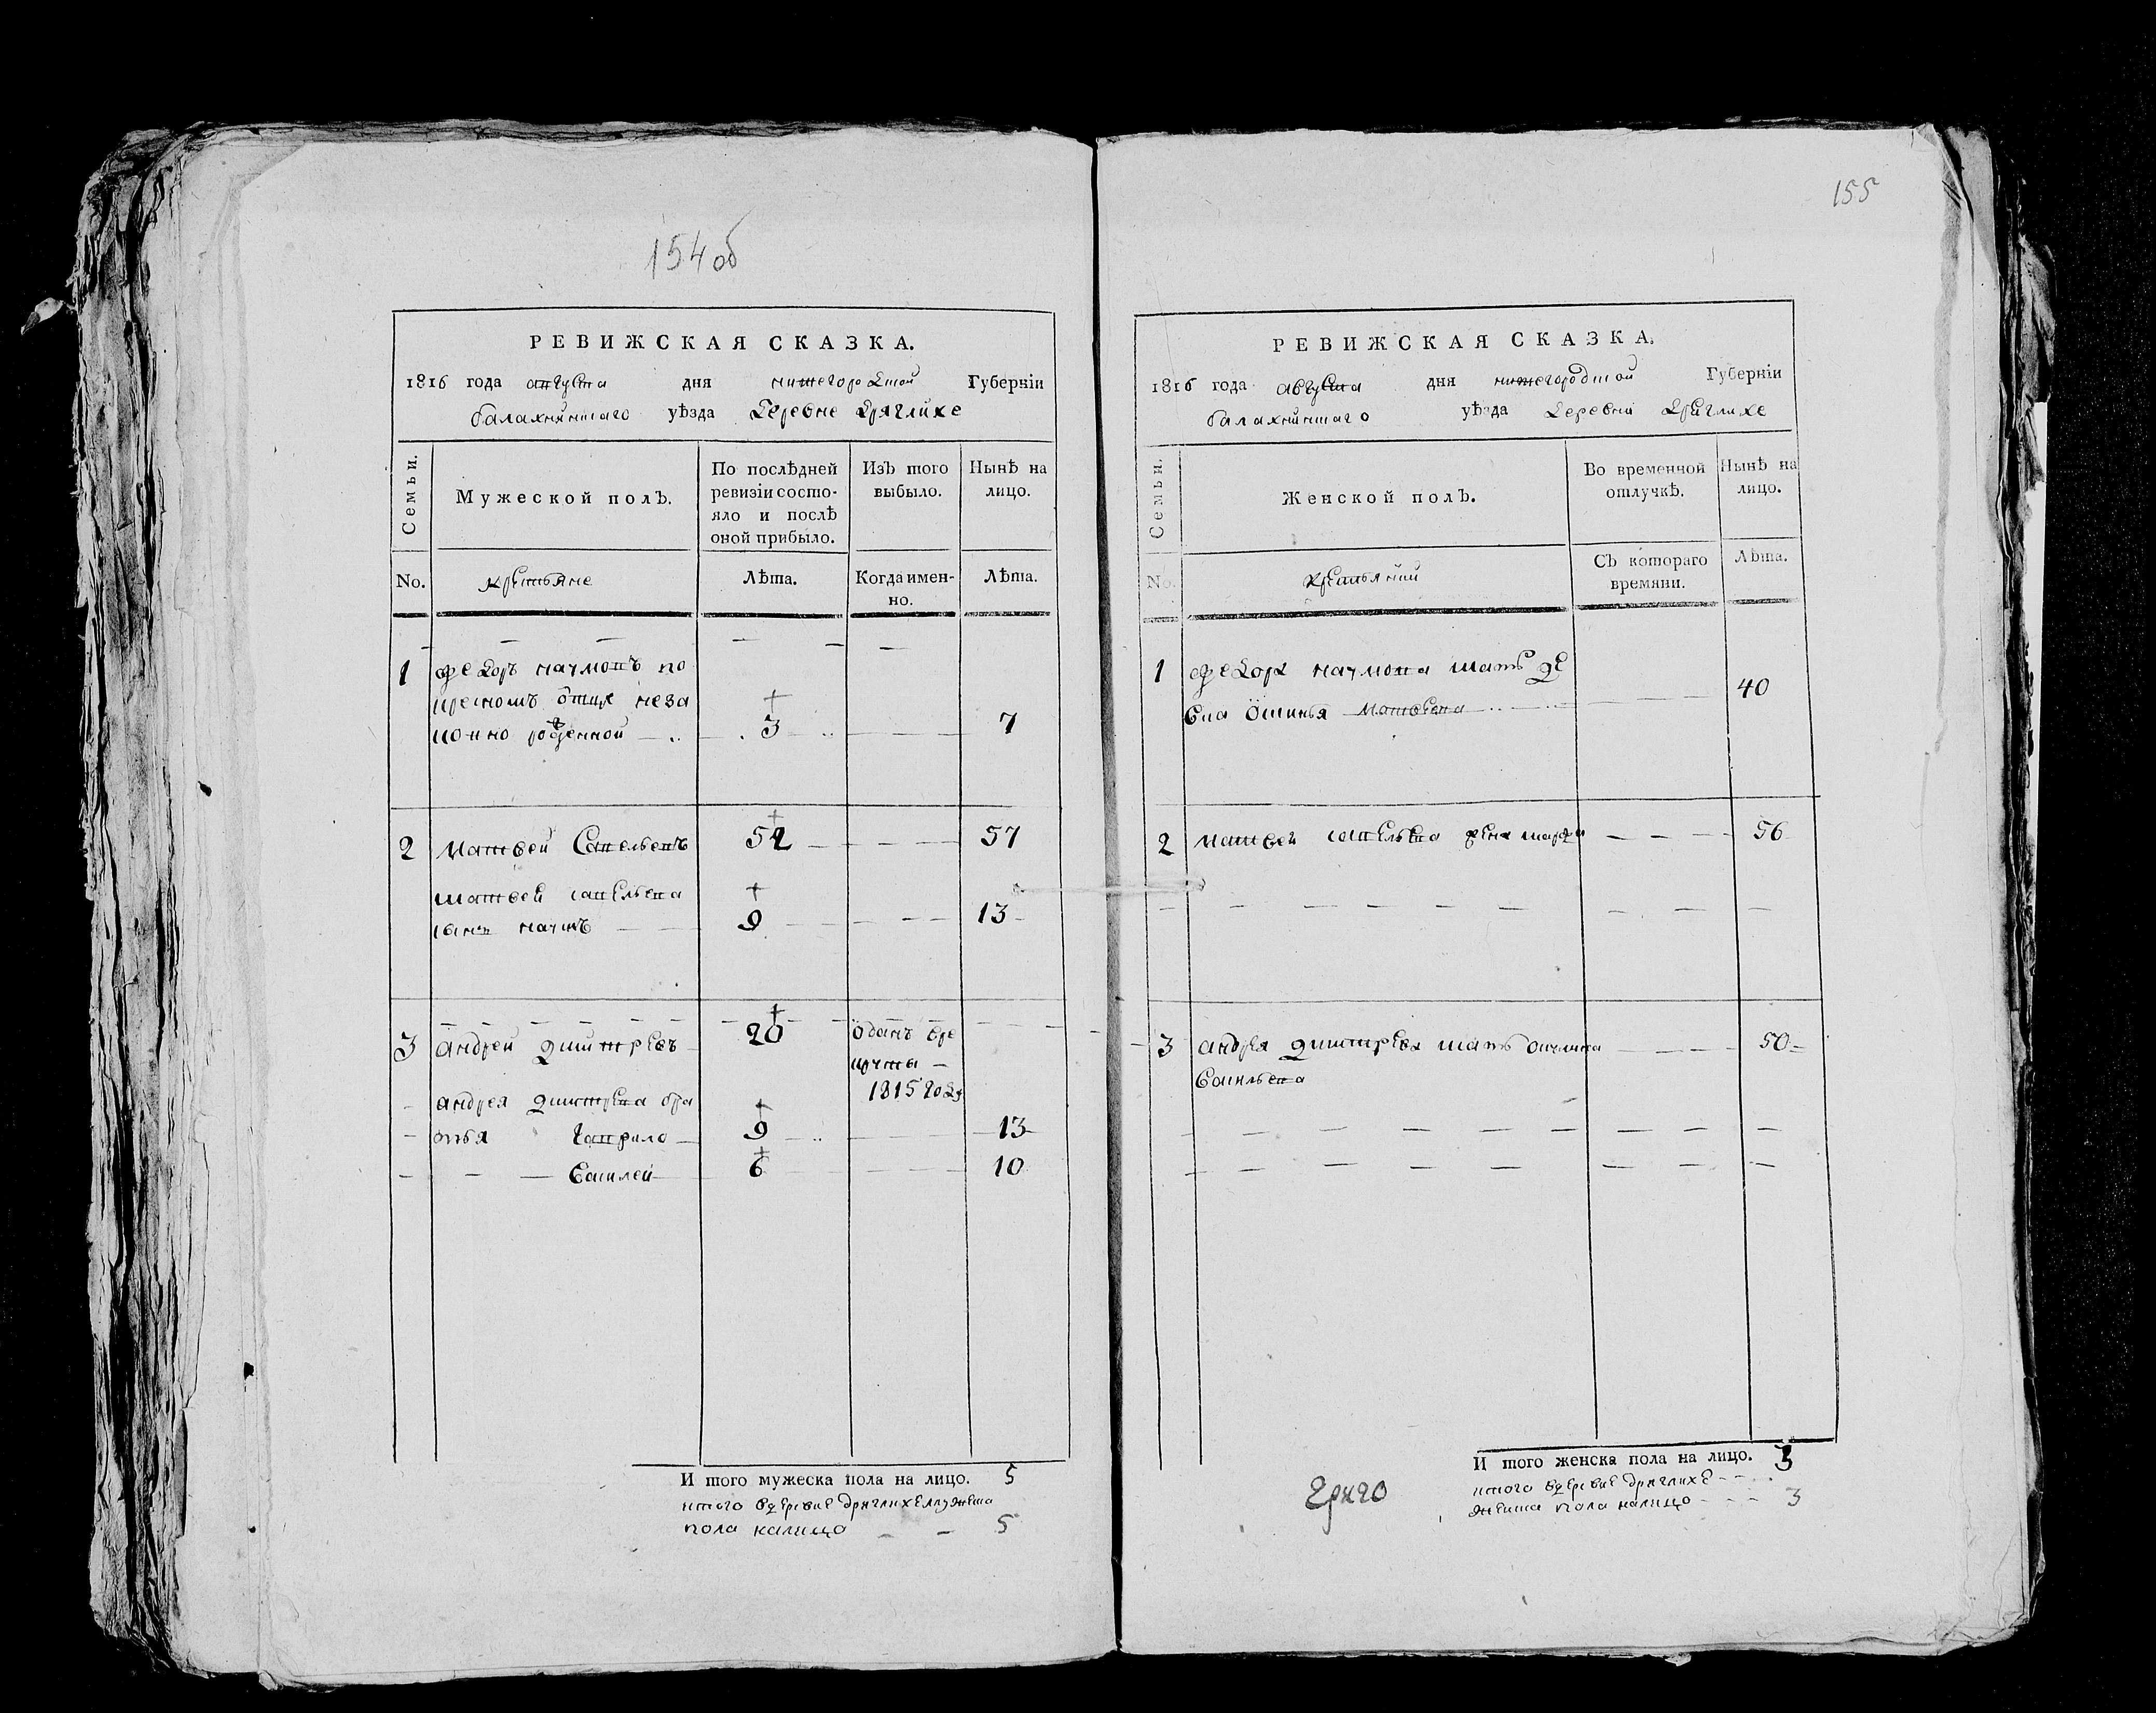 155
154 об
РЕВИЖСКАЯ СКАЗКА.
1816 года августа дня нижегородской Губерніи
балахнинскаго уѣзда Деревне Дряглихе
Семьи. Мужеской полъ. По послѣдней ревизіи состояло и послѣ оной прибыло. Изъ того выбыло. Нынѣ на лицо.
No. крестьяне Лѣта. Когда имен-но. Лѣта.
1 федоръ наумовъ по
крестномъ отце неза
конно рожденной 3 7
2 матвей Савельевъ 52 57
матвей савельева
сынъ наумъ 9 13
3 андрей дмитревъ 20 оданъ вре
круты
1815 году
андрея дмитрева бра
тья гаврило 9 13
василей 6 10
И того мужеска пола на лицо. 5
итого вдеревне дряглихе мужеска
пола налицо 5
РЕВИЖСКАЯ СКАЗКА.
1816 года августа дня нижегородской Губерніи
балахнинскаго уѣзда Деревни Дряглихе
Семьи. Женской полъ. Во временной отлучкѣ. Нынѣ на лицо.
No. Съ котораго времяни. Лѣта.
1 федора наумова мать де
вка матвева 40
2 матвея савельева жена марфа 56
3 андрея дмитрева мать
васильева 50
И того женска пола на лицо. 3
итого вдеревне дряглихе
женска пола налицо 3